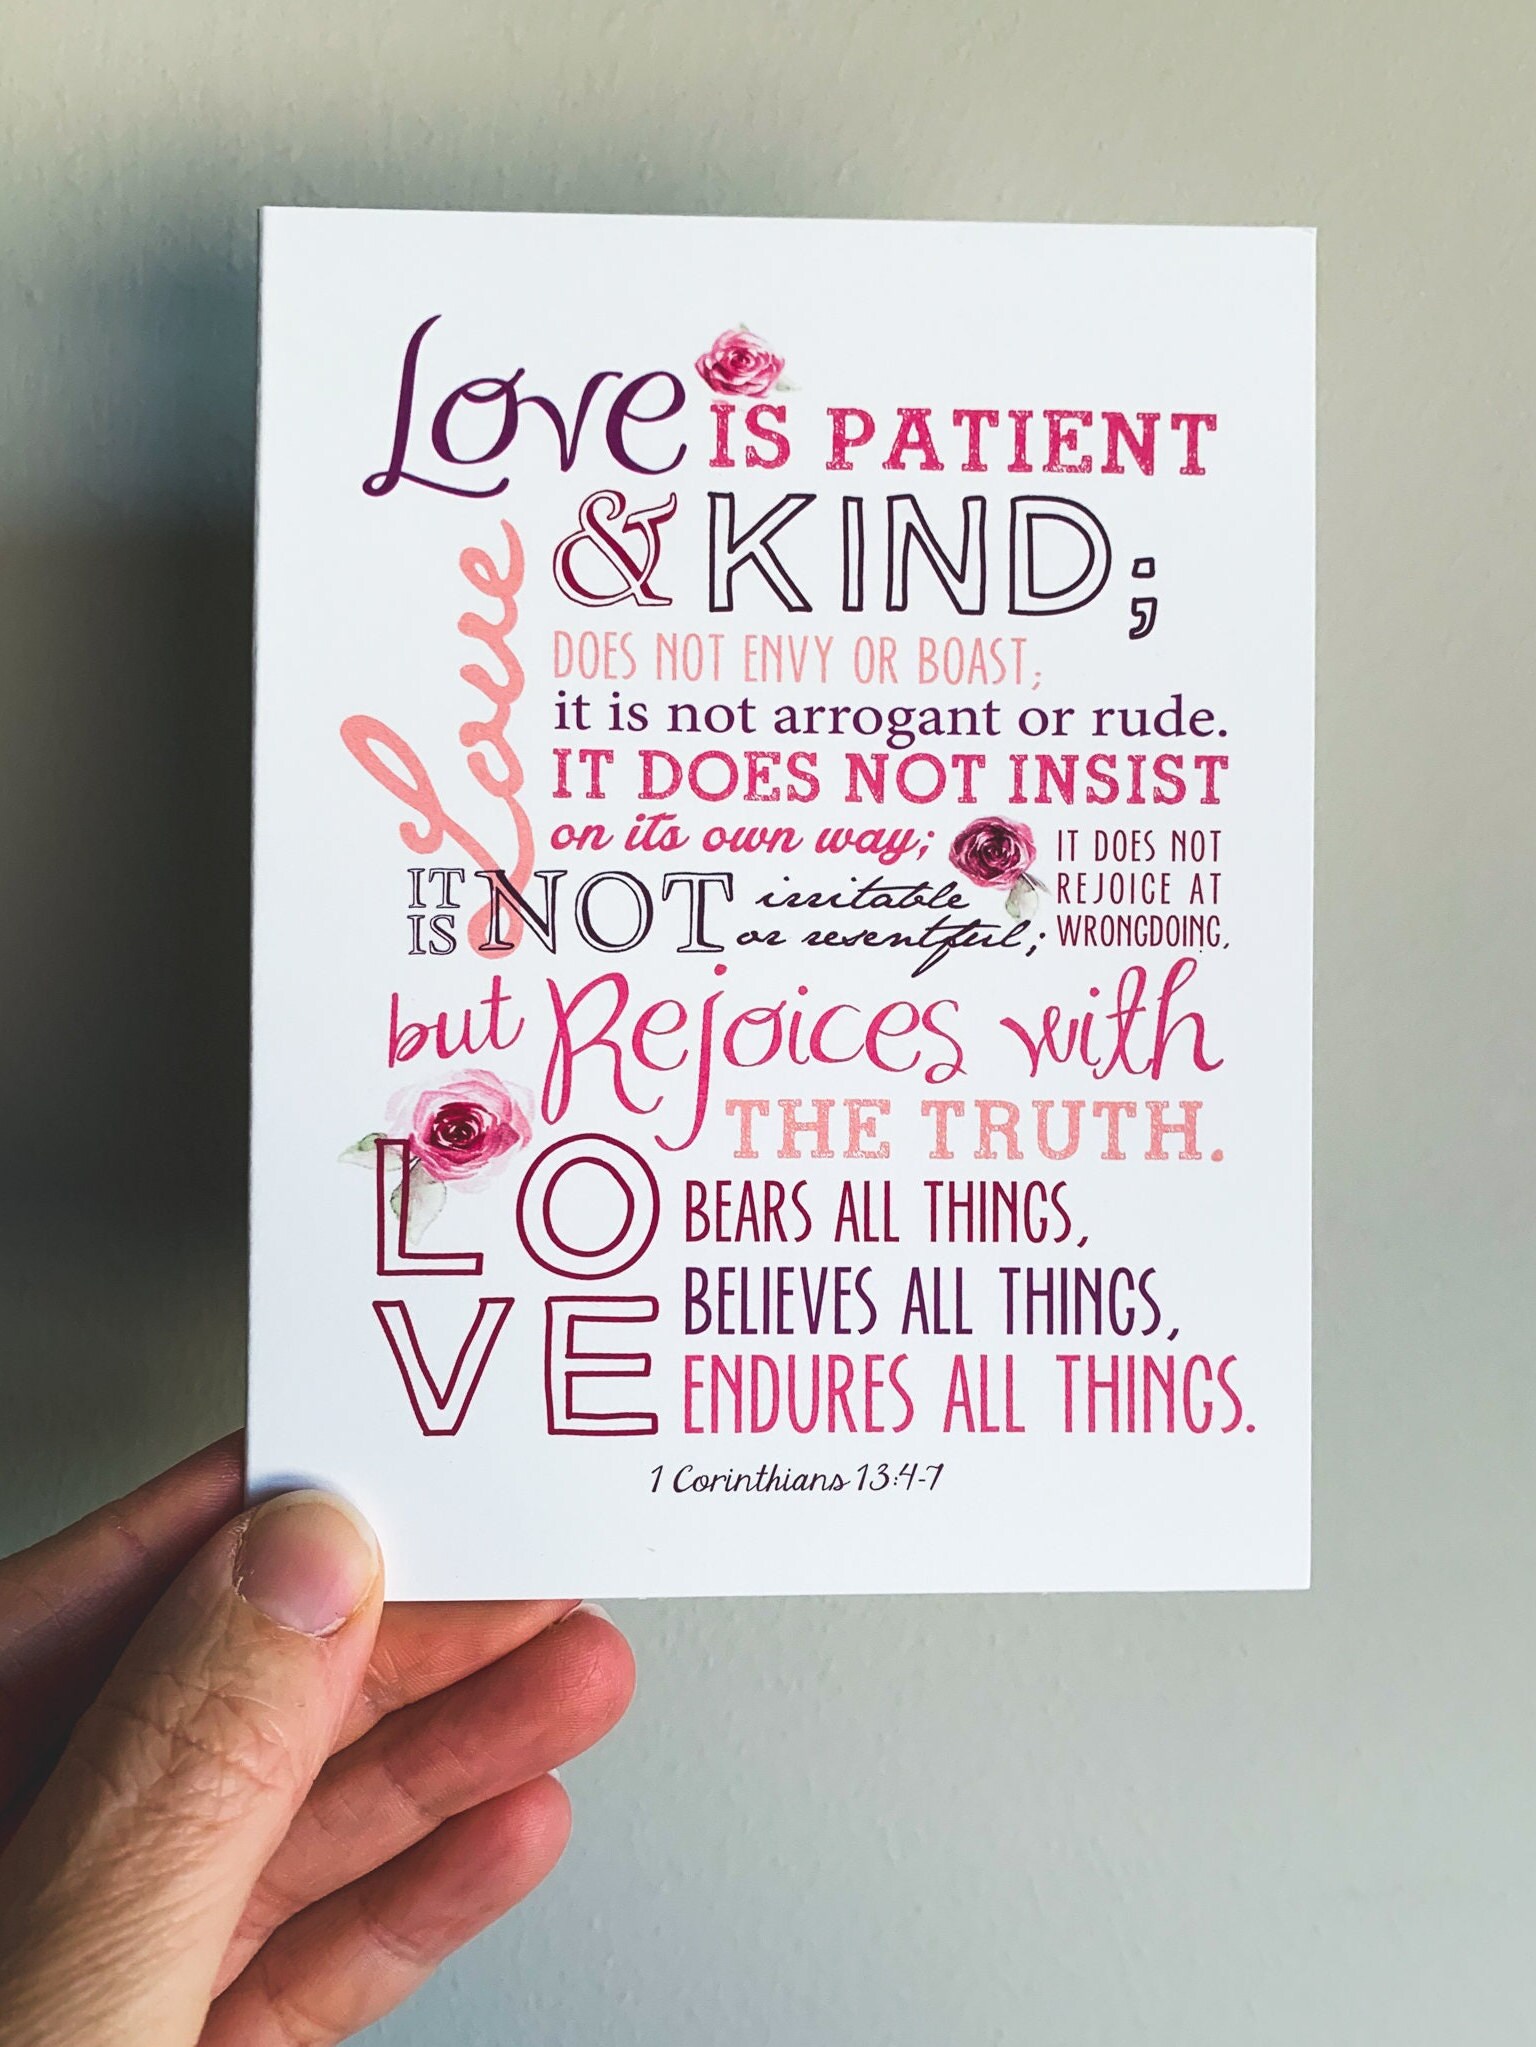 Love IS PATIENT
& KIND;
Love
DOES NOT ENVY OR BOAST;
it is not arrogant or rude.
IT DOES NOT INSIST
on its own way;
IT IS NOT irritable
or resentful;
IT DOES NOT
REJOICE AT
WRONGDOING,
but Rejoices with
THE TRUTH.
LOVE
BEARS ALL THINGS,
BELIEVES ALL THINGS,
ENDURES ALL THINGS.
1 Corinthians 13:4-7